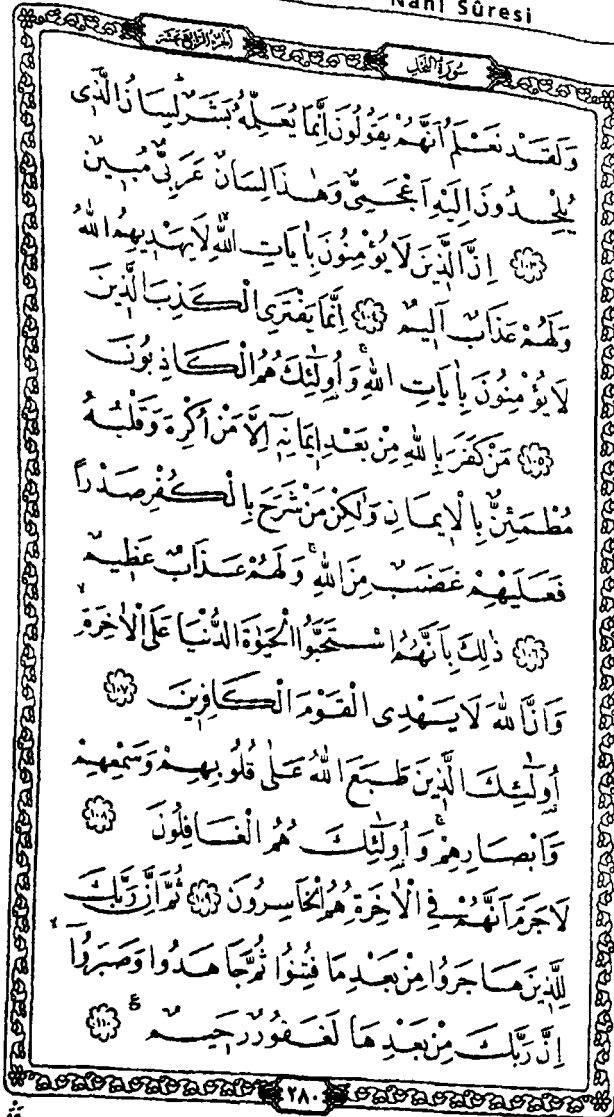 Nahl Sûresi
سُورَةُ النَّحْلِ
اَلْجُزْءُ الرَّابِعَ عَشَرَ
وَلَقَدْ نَعْلَمُ اَنَّهُمْ يَقُولُونَ اِنَّمَا يُعَلِّمُهُ بَشَرٌۜ لِسَانُ الَّذ۪ي
يُلْحِدُونَ اِلَيْهِ اَعْجَمِيٌّ وَهٰذَا لِسَانٌ عَرَبِيٌّ مُب۪ينٌ
﴿١٠٣﴾ اِنَّ الَّذ۪ينَ لَا يُؤْمِنُونَ بِاٰيَاتِ اللّٰهِ لَا يَهْد۪يهِمُ اللّٰهُ
وَلَهُمْ عَذَابٌ اَل۪يمٌ ﴿١٠٤﴾ اِنَّمَا يَفْتَرِي الْكَذِبَ الَّذ۪ينَ
لَا يُؤْمِنُونَ بِاٰيَاتِ اللّٰهِۚ وَاُو۬لٰٓئِكَ هُمُ الْكَاذِبُونَ
﴿١٠٥﴾ مَنْ كَفَرَ بِاللّٰهِ مِنْ بَعْدِ ا۪يمَانِه۪ٓ اِلَّا مَنْ اُكْرِهَ وَقَلْبُهُ
مُطْمَئِنٌّ بِالْا۪يمَانِ وَلٰكِنْ مَنْ شَرَحَ بِالْكُفْرِ صَدْرًا
فَعَلَيْهِمْ غَضَبٌ مِنَ اللّٰهِۚ وَلَهُمْ عَذَابٌ عَظ۪يمٌ
﴿١٠٦﴾ ذٰلِكَ بِاَنَّهُمُ اسْتَحَبُّوا الْحَيٰوةَ الدُّنْيَا عَلَى الْاٰخِرَةِۙ
وَاَنَّ اللّٰهَ لَا يَهْدِي الْقَوْمَ الْكَافِر۪ينَ ﴿١٠٧﴾
اُو۬لٰٓئِكَ الَّذ۪ينَ طَبَعَ اللّٰهُ عَلٰى قُلُوبِهِمْ وَسَمْعِهِمْ
وَاَبْصَارِهِمْۚ وَاُو۬لٰٓئِكَ هُمُ الْغَافِلُونَ ﴿١٠٨﴾
لَا جَرَمَ اَنَّهُمْ فِي الْاٰخِرَةِ هُمُ الْخَاسِرُونَ ﴿١٠٩﴾ ثُمَّ اِنَّ رَبَّكَ
لِلَّذ۪ينَ هَاجَرُوا مِنْ بَعْدِ مَا فُتِنُوا ثُمَّ جَاهَدُوا وَصَبَرُٓواۙ
اِنَّ رَبَّكَ مِنْ بَعْدِهَا لَغَفُورٌ رَح۪يمٌ۟ ﴿١١٠﴾
٢٨٠